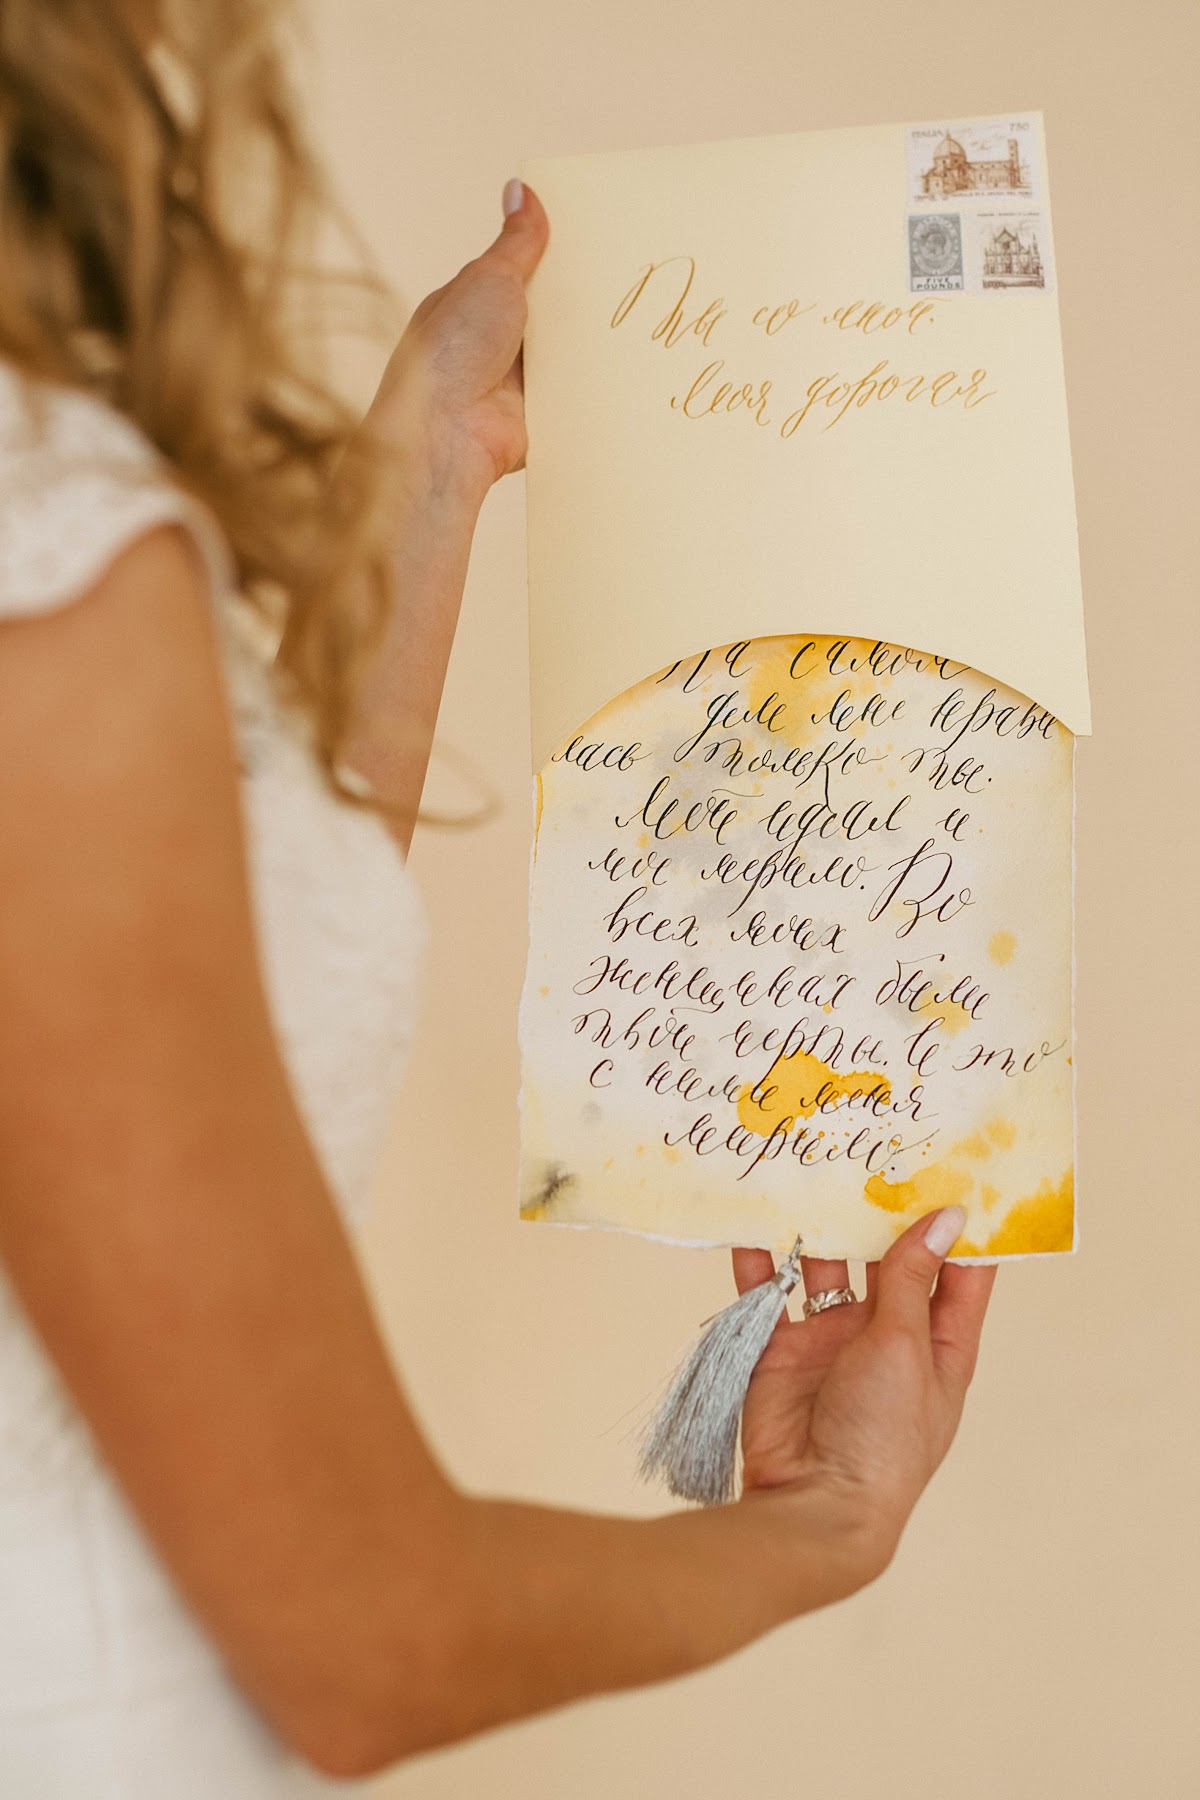 ITALIA 750
FIVE
POUNDS
Ты со мной.
Моя дорогая
На самом
деле мне нрави
лась только ты.
Мой идеал и
мое мерило. Во
всех моих
женщинах были
твои черты. И это
с ними меня
мирило.